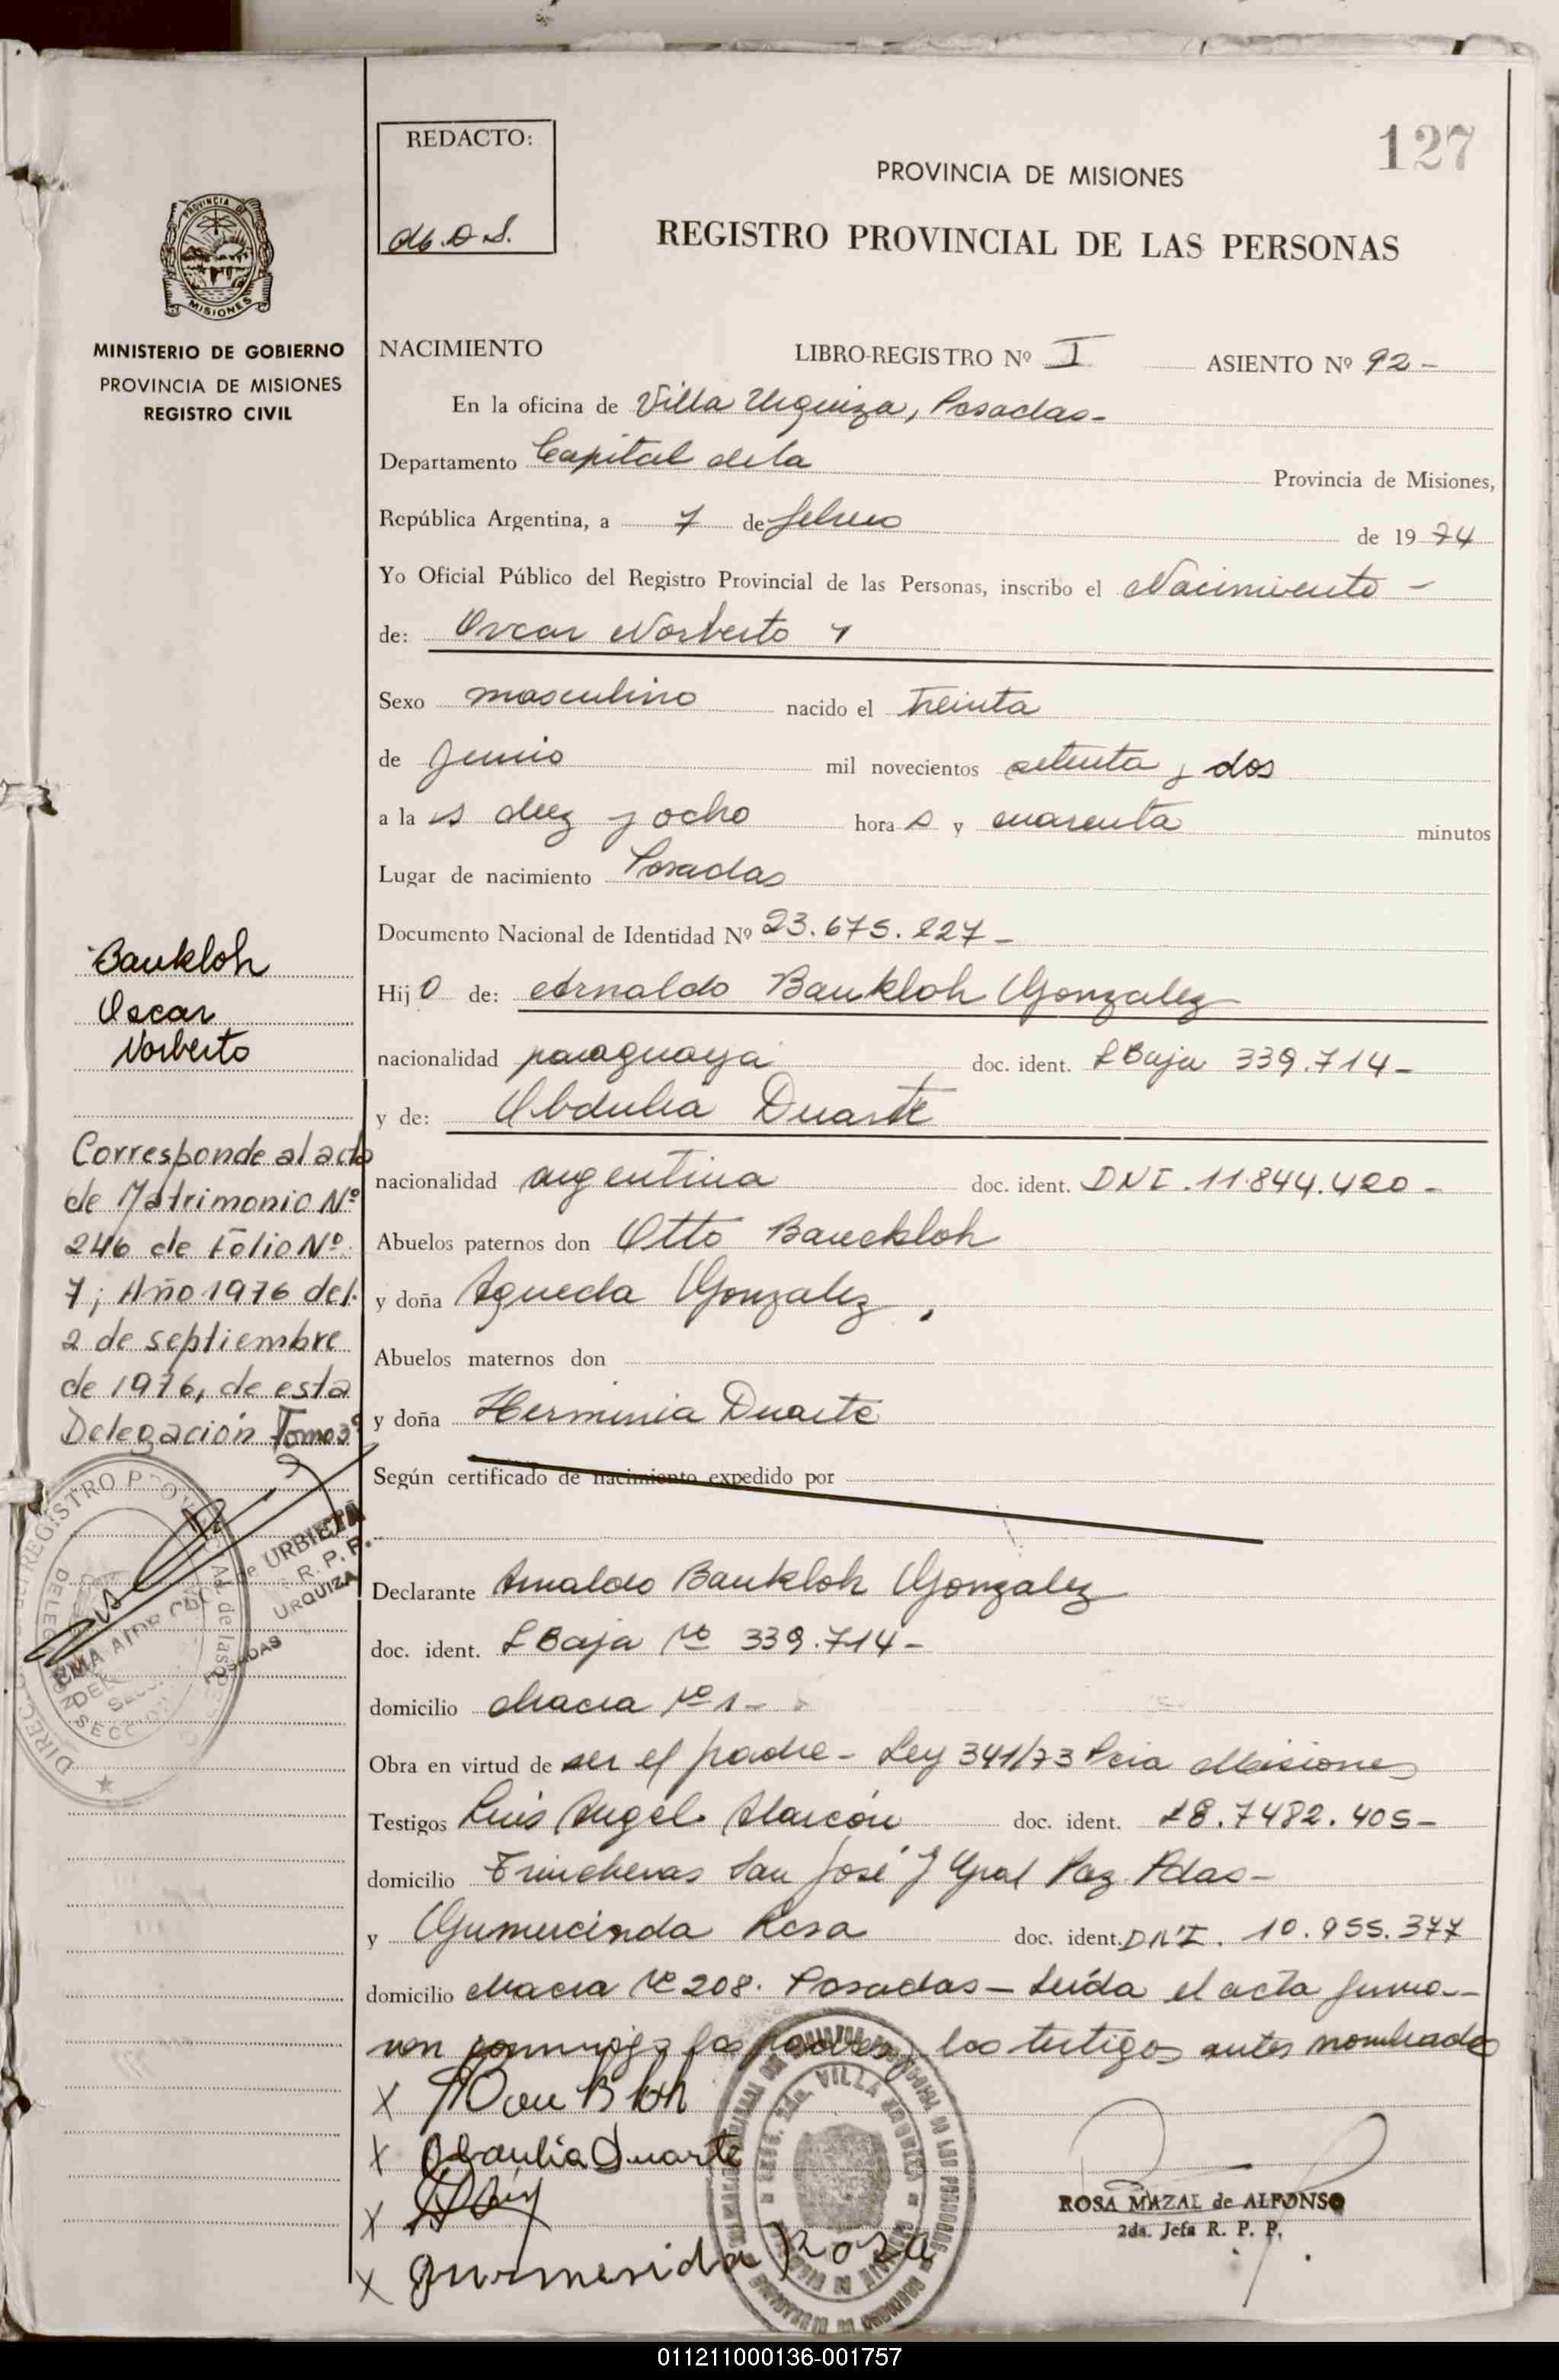 127
REDACTO:
PROVINCIA DE MISIONES
REGISTRO PROVINCIAL DE LAS PERSONAS
PROVINCIA DE
MISIONES
MINISTERIO DE GOBIERNO
PROVINCIA DE MISIONES
REGISTRO CIVIL
NACIMIENTO LIBRO-REGISTRO Nº I ASIENTO Nº 92-
En la oficina de Villa Urquiza, Posadas-
Departamento Capital de la Provincia de Misiones,
República Argentina, a 7 de febrero de 1974
Yo Oficial Público del Registro Provincial de las Personas, inscribo el Nacimiento -
de: Oscar Norberto
Sexo masculino nacido el treinta
de Junio mil novecientos setenta y dos
a las diez y ocho horas y cuarenta minutos
Lugar de nacimiento Posadas
Documento Nacional de Identidad Nº 23.675.227-
Hijo de: Arnaldo Baukloh Gonzalez
nacionalidad paraguaya doc. ident. LBaja 339.714-
y de: Obdulia Duarte
nacionalidad argentina doc. ident. DNI. 11.844.420-
Abuelos paternos don Otto Bauckloh
y doña Agueda Gonzalez.
Abuelos maternos don
y doña Herminia Duarte
Según certificado de nacimiento expedido por
Declarante Arnaldo Baukloh Gonzalez
doc. ident. LBaja Nº 339.714-
domicilio Chacra Nº 1-
Obra en virtud de ser el padre - Ley 341/73 Pcia Misiones
Testigos Luis Angel Alarcón doc. ident. 7482.405-
domicilio Trincheras San José y Gral Paz Pdas-
y Gumercinda Rosa doc. ident. DNI. 10.955.377
domicilio Chacra Nº 208. Posadas - Leída el acta firma-
ron conmigo los padres y los testigos antes nombrados
X
X Obdulia Duarte
X
X
ROSA MAZAL de ALFONSO
2da. Jefa R. P. P.
VILLA URQUIZA
Baukloh
Oscar
Norberto
Corresponde al acta
de Matrimonio Nº
246 de Folio Nº
7; Año 1976 del
2 de septiembre
de 1976, de esta
Delegación Tomo 3º
de URBIETA
R. P. P.
URQUIZA
POSADAS
011211000136-001757